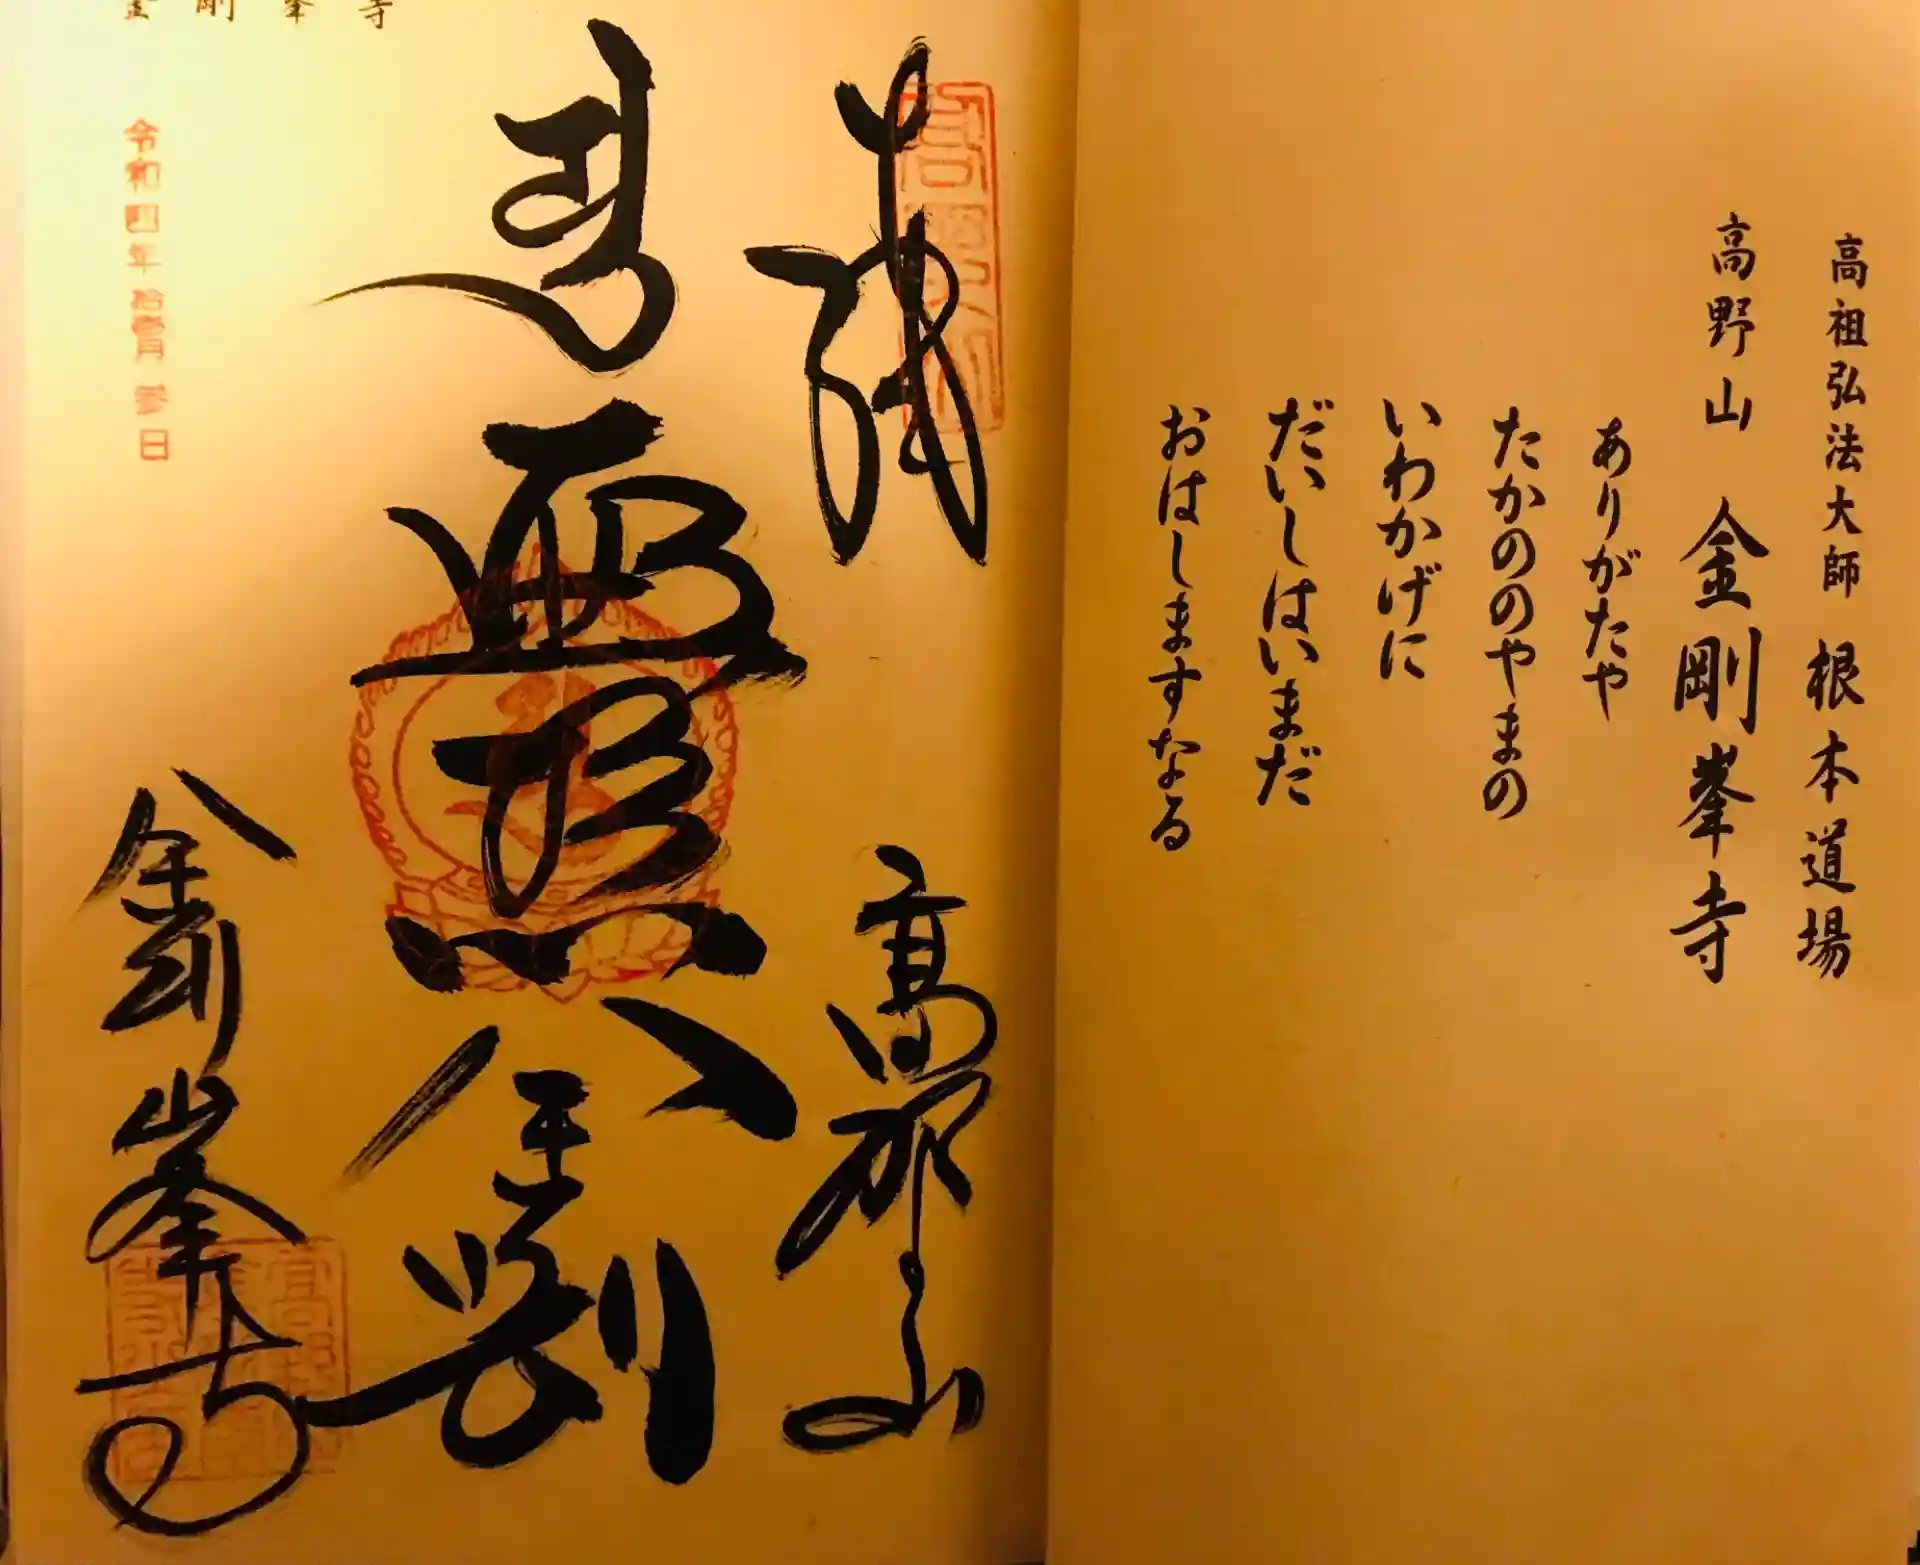 高祖弘法大師 根本道場
高野山 金剛峯寺
ありがたや
たかののやまの
いわかげに
だいしはいまだ
おはしますなる
奉拝 高野山
遍照金剛
金剛峯寺
金剛峯寺
令和四年拾壹月参日